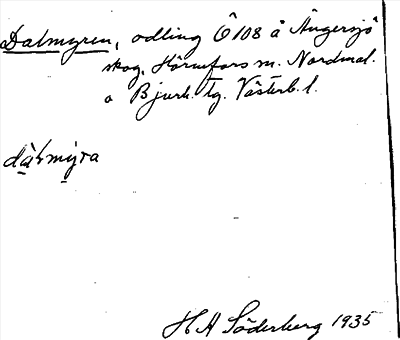 Dalmyren, odling Ö 108 å Ängersjö
skog, Hörnefors m. Nordmal.
o Bjurh. tg. Västerb. l.
dạlmy̩ra
H A Söderberg 1935